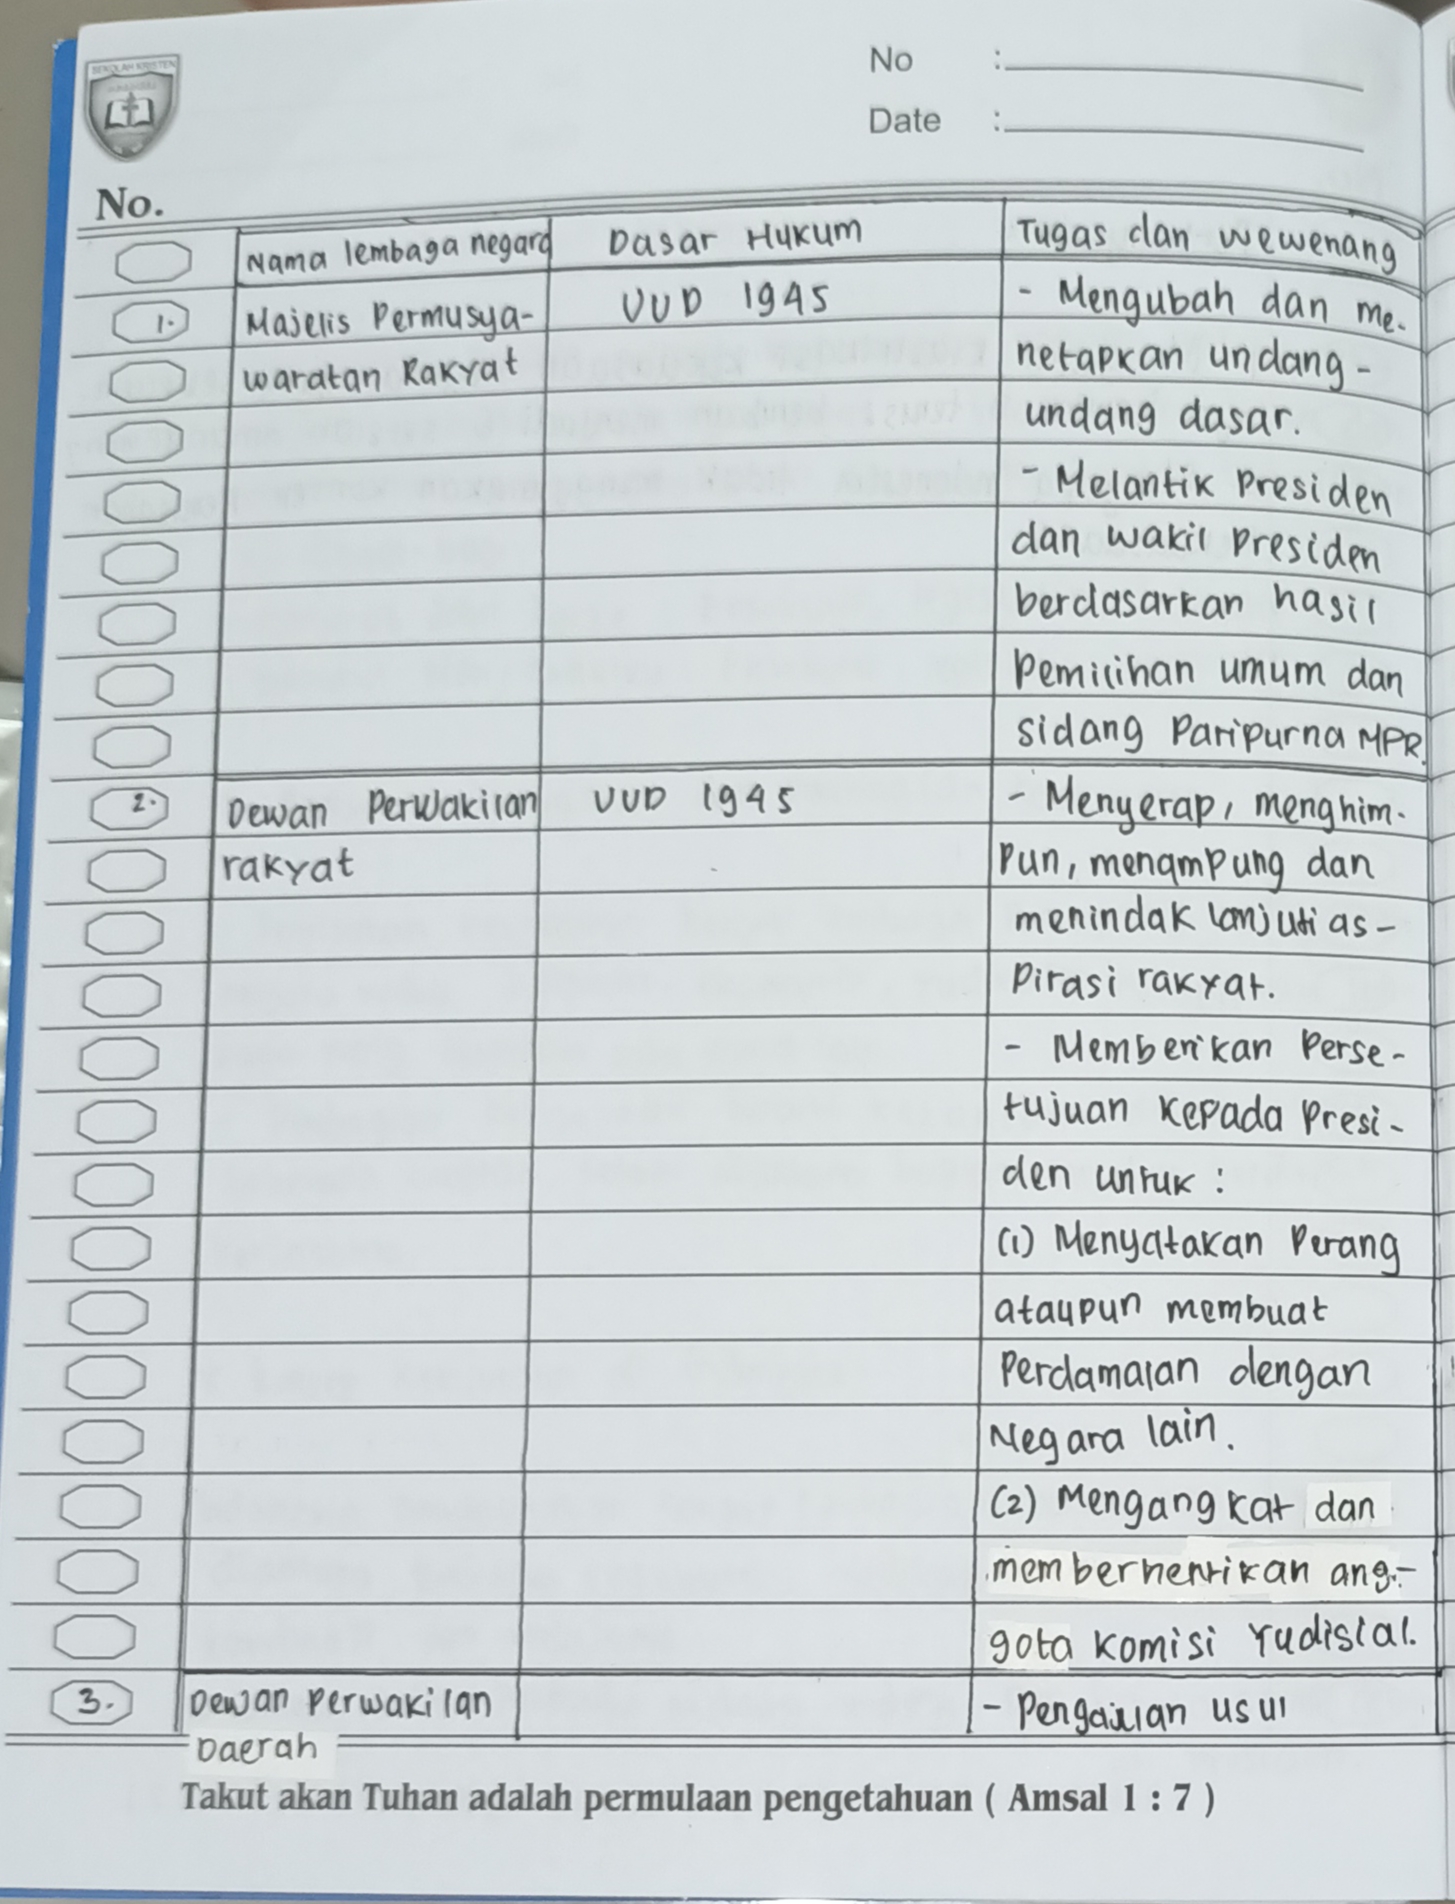 SEKOLAH KRISTEN
No :
Date :
No.
Nama lembaga negara Dasar Hukum Tugas dan wewenang
1. Majelis Permusya- UUD 1945 - Mengubah dan me-
waratan Rakyat netapkan undang-
undang dasar.
- Melantik Presiden
dan wakil Presiden
berdasarkan hasil
Pemilihan umum dan
sidang Paripurna MPR.
2. Dewan Perwakilan UUD 1945 - Menyerap, menghim-
rakyat Pun, menampung dan
menindak lanjuti as-
Pirasi rakyat.
- Memberikan Perse-
tujuan kepada Presi-
den untuk :
(1) Menyatakan Perang
ataupun membuat
Perdamaian dengan
Negara lain.
(2) Mengangkat dan
memberhentikan ang-
gota Komisi Yudisial.
3. Dewan Perwakilan - Pengajuan usul
Daerah
Takut akan Tuhan adalah permulaan pengetahuan ( Amsal 1 : 7 )